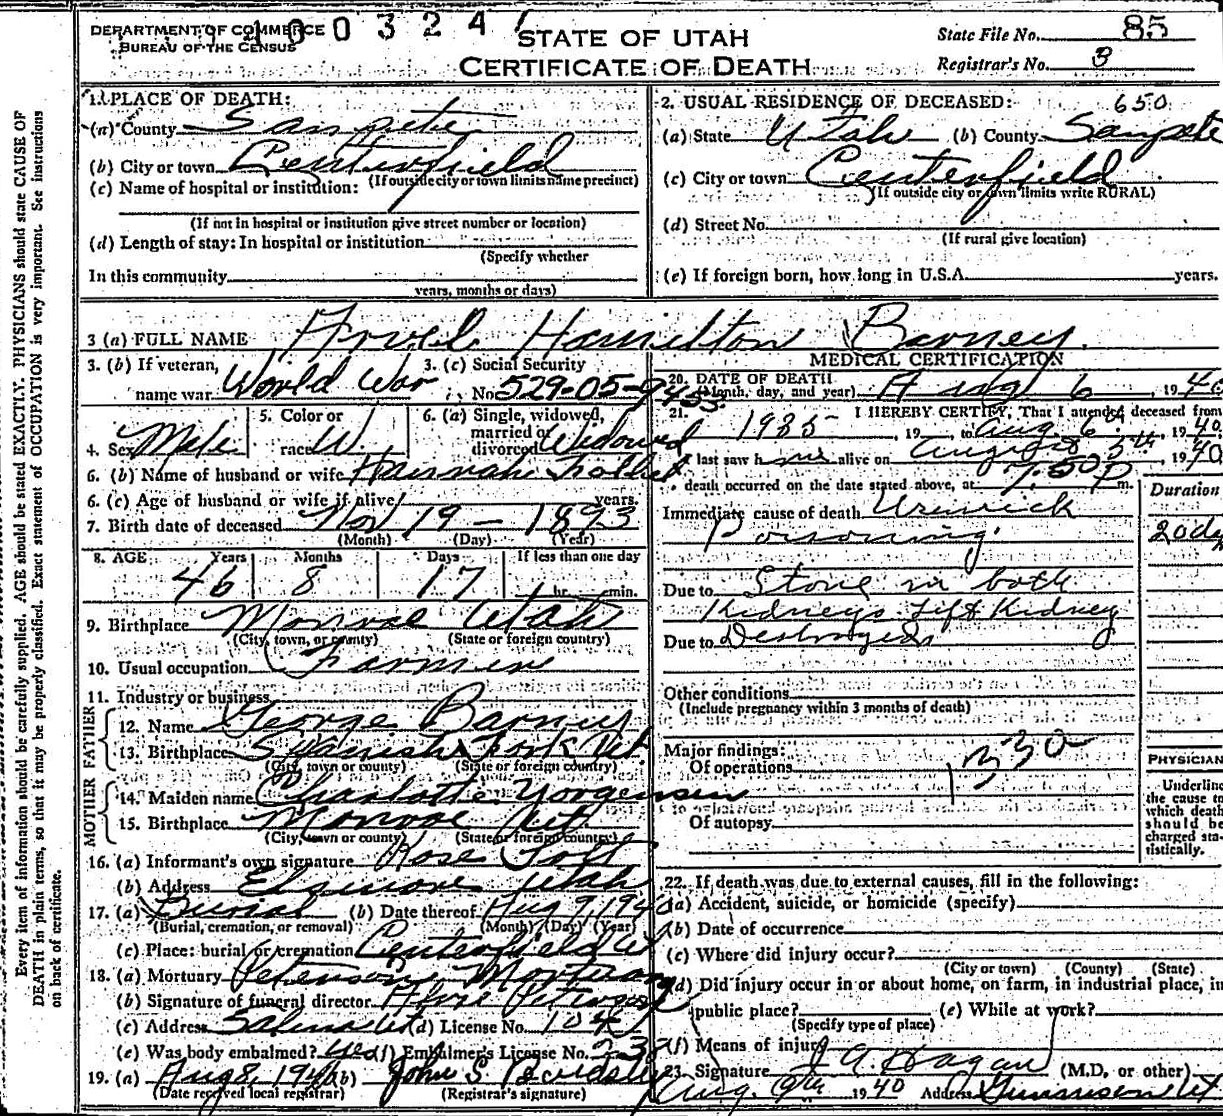 DEPARTMENT OF COMMERCE
BUREAU OF THE CENSUS
100324
STATE OF UTAH
CERTIFICATE OF DEATH
State File No. 85
Registrar's No. 3
1. PLACE OF DEATH:
(a) County Sanpete
(b) City or town Centerfield
(If outside city or town limits name precinct)
(c) Name of hospital or institution:
(If not in hospital or institution give street number or location)
(d) Length of stay: In hospital or institution
(Specify whether
In this community
years, months or days)
2. USUAL RESIDENCE OF DECEASED: 650
(a) State Utah (b) County Sanpete
(c) City or town Centerfield
(If outside city or town limits write RURAL)
(d) Street No.
(If rural give location)
(e) If foreign born, how long in U.S.A. years.
3 (a) FULL NAME Hamilton Barney
3. (b) If veteran, name war World War
3. (c) Social Security No. 529-05-9455
4. Sex Male
5. Color or race W.
6. (a) Single, widowed, married or divorced Widowed
6. (b) Name of husband or wife Hannah
6. (c) Age of husband or wife if alive years.
7. Birth date of deceased Nov 19 - 1893
(Month) (Day) (Year)
8. AGE Years Months Days If less than one day
46 8 17 hr. min.
9. Birthplace Monroe Utah
(City, town, or county) (State or foreign country)
10. Usual occupation Farmer
11. Industry or business
FATHER
12. Name George Barney
13. Birthplace Spanish Fork Ut.
(City, town or county) (State or foreign country)
MOTHER
14. Maiden name Charlotte Yorgensen
15. Birthplace Monroe Ut
(City, town or county) (State or foreign country)
16. (a) Informant's own signature Rose
(b) Address Elsinore Utah
17. (a) Burial (b) Date thereof Aug 9, 1940
(Burial, cremation, or removal) (Month) (Day) (Year)
(c) Place: burial or cremation Centerfield Ut
18. (a) Mortuary Petersons Mortuary
(b) Signature of funeral director
(c) Address Salina Ut (d) License No. 104
(e) Was body embalmed? yes (f) Embalmer's License No. 237
19. (a) Aug 8, 1940 (b) John S.
(Date received local registrar) (Registrar's signature)
MEDICAL CERTIFICATION
20. DATE OF DEATH
(Month, day, and year) Aug 6, 1940
21. I HEREBY CERTIFY, That I attended deceased from
1935, 19 to Aug 6th, 1940
I last saw him alive on August 5th, 1940
death occurred on the date stated above, at 7:50 P m.
Duration
Immediate cause of death Uremick
Poisoning. 20 dys
Due to Stone in both
Kidneys Left Kidney
Due to Destroyed
Other conditions
(Include pregnancy within 3 months of death)
Major findings:
Of operations
Of autopsy
PHYSICIAN
Underline
the cause to
which death
should be
charged sta-
tistically.
22. If death was due to external causes, fill in the following:
(a) Accident, suicide, or homicide (specify)
(b) Date of occurrence
(c) Where did injury occur?
(City or town) (County) (State)
(d) Did injury occur in or about home, on farm, in industrial place, in
public place? (e) While at work?
(Specify type of place)
(f) Means of injury
23. Signature J A. Hagan (M.D, or other)
Aug. 9th 1940 Address Gunnison Ut
Every item of information should be carefully supplied. AGE should be stated EXACTLY. PHYSICIANS should state CAUSE OF
DEATH in plain terms, so that it may be properly classified. Exact statement of OCCUPATION is very important. See instructions
on back of certificate.